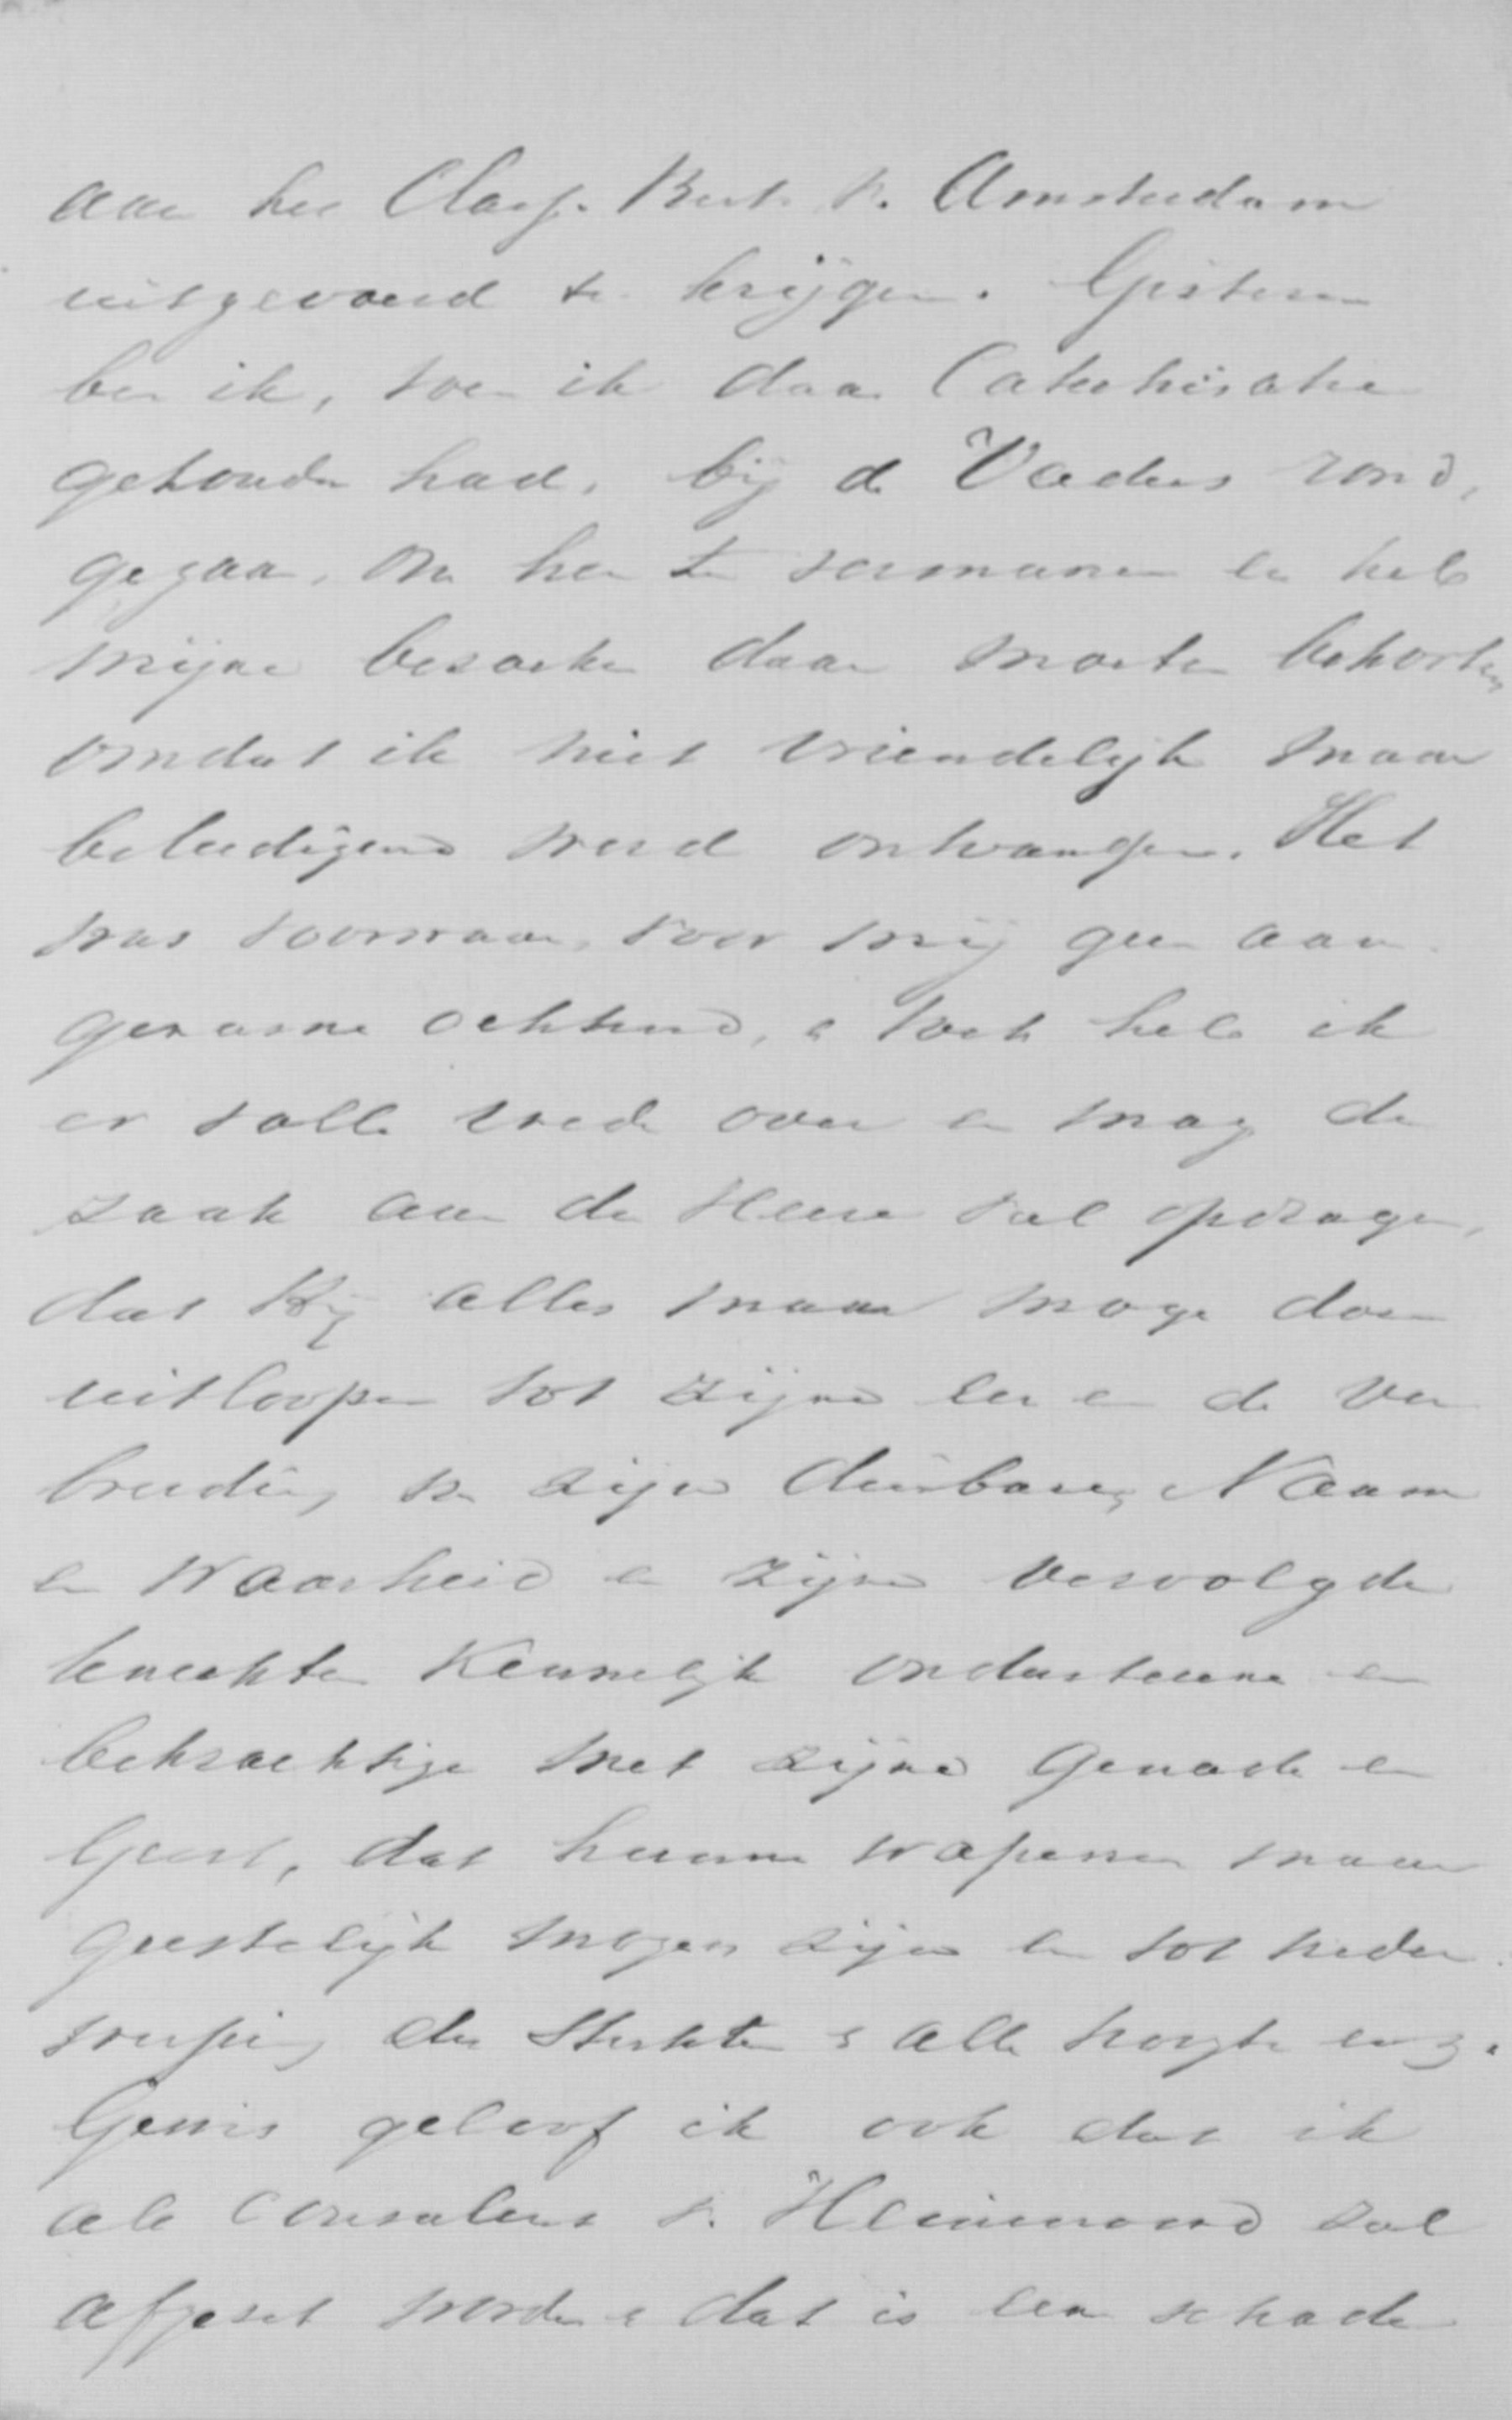 aan het Class. Best. v. Amsterdam
uitgevoerd te krijgen. Gisteren
ben ik, toen ik daar Catechisatie
gehouden had, bij de Vaders rond,
gegaan, om hen te vermanen en heb
mijne bezoeken daar moeten bekorten
omdat ik niet vriendelijk maar
beleedigend werd ontvangen. Het
was voorwaar, voor mij geen aan
gename ochtend, & toch heb ik
er volle vrede over en mag de
zaak aan den Heere veel opdragen,
dat Hij alles maar moge doen
uitloopen tot zijne eer en de ver
breiding van zijn dierbaren Naam
en Waarheid en zijne vervolgde
knechten kennelijk ondersteune en
bekrachtige met zijne genade en
Geest, dat hunne wapenen maar
geestelijk mogen zijn en tot neder
werping der Sterkten & alle hoogte enz.
Gewis geloof ik ook dat ik
als Consulent v. Heinenoord zal
afgezet worden & dat is een schade